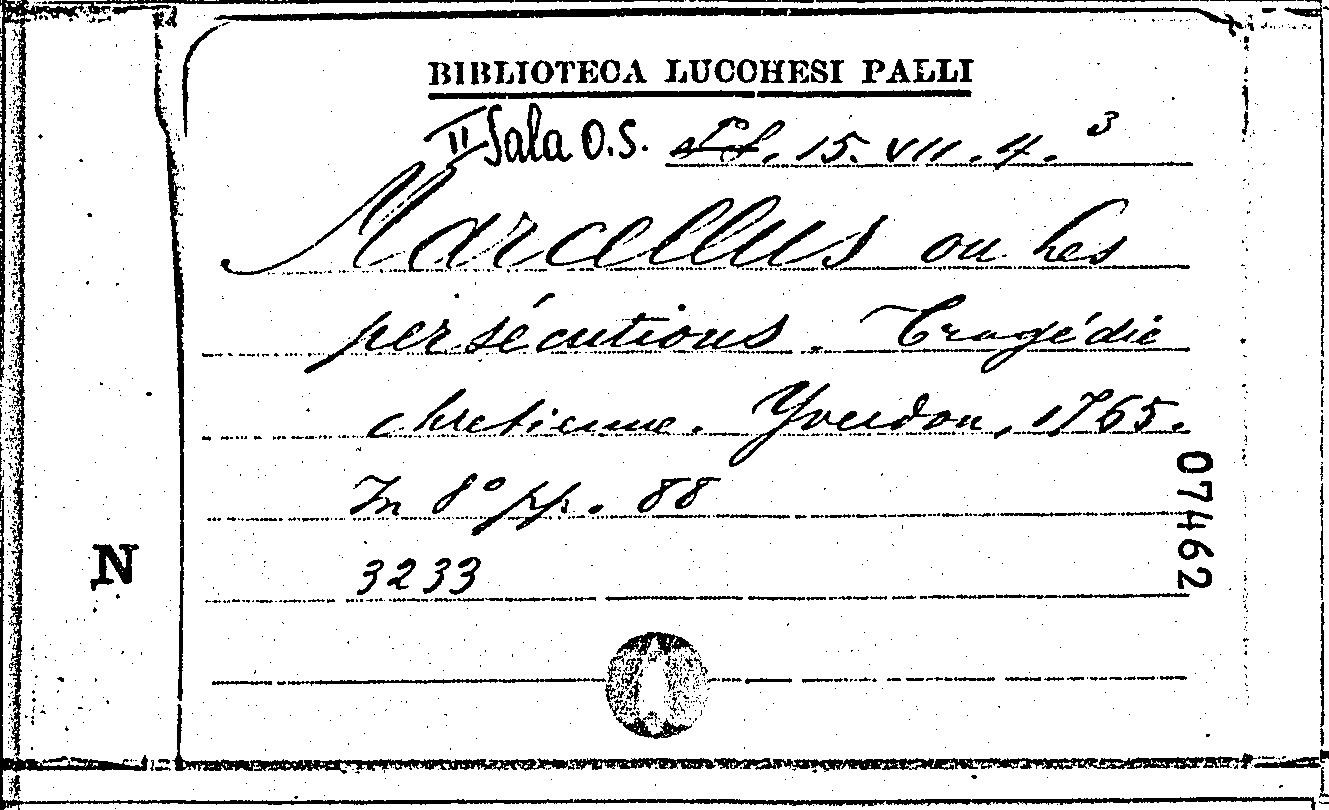 BIBLIOTECA LUCCHESI PALLI
II Sala O.S. 15. VII. 4.³
Marcellus ou les
persécutions. Tragédie
chretienne. Yverdon, 1765.
In 8° pp. 88
3233
07462
N